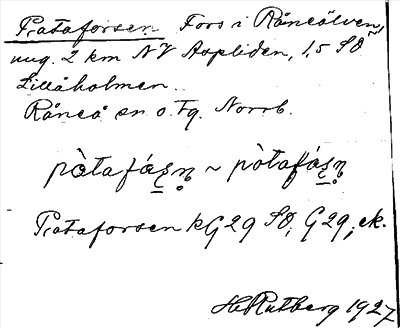 Pråtaforsen Fors i Råneälven,
ung. 2 km NV Aspliden, 1,5 SO
Lillåholmen.
Råneå sn o. Fg. Norrb.
pròtafáʂn̥ ~ pròtafáʂn̥
Pråtaforsen kG29 SO, G29, ek.
H. Rutberg 1927